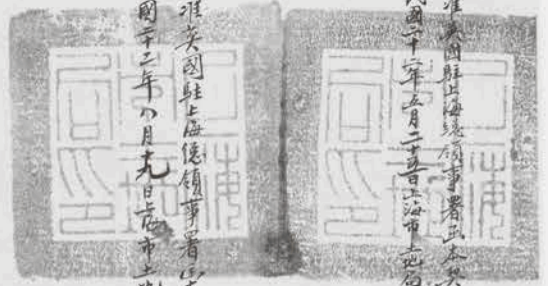 准英國駐上海總領事署函本契
民國二十六年五月二十五日上海市土地局
准英國駐上海總領事署函
國二十三年八月十九日上海市土地